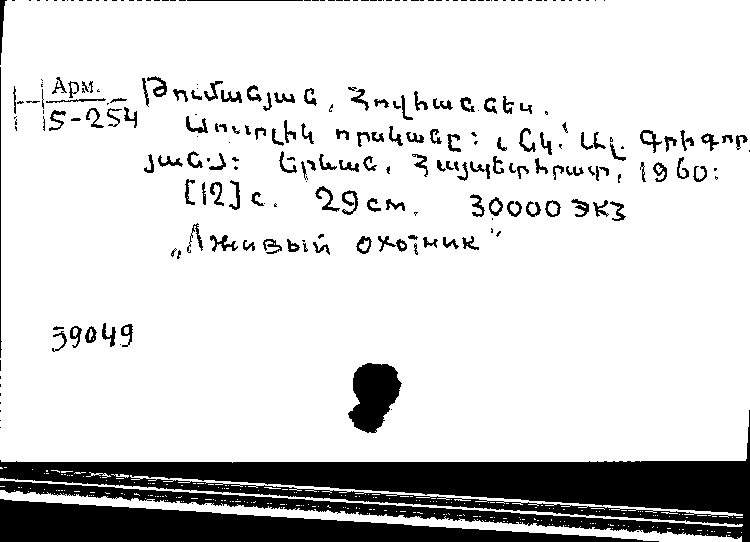 Арм. Թումանյան, Հովհաննես.
5-254 Սուտլիկ որսկանը: ( Նկ.՝ Ալ. Գրիգոր
յանի): Երևան, Հայպետհրատ, 1960:
[12] с. 29 см. 30000 экз
„Лживый охотник"
39049